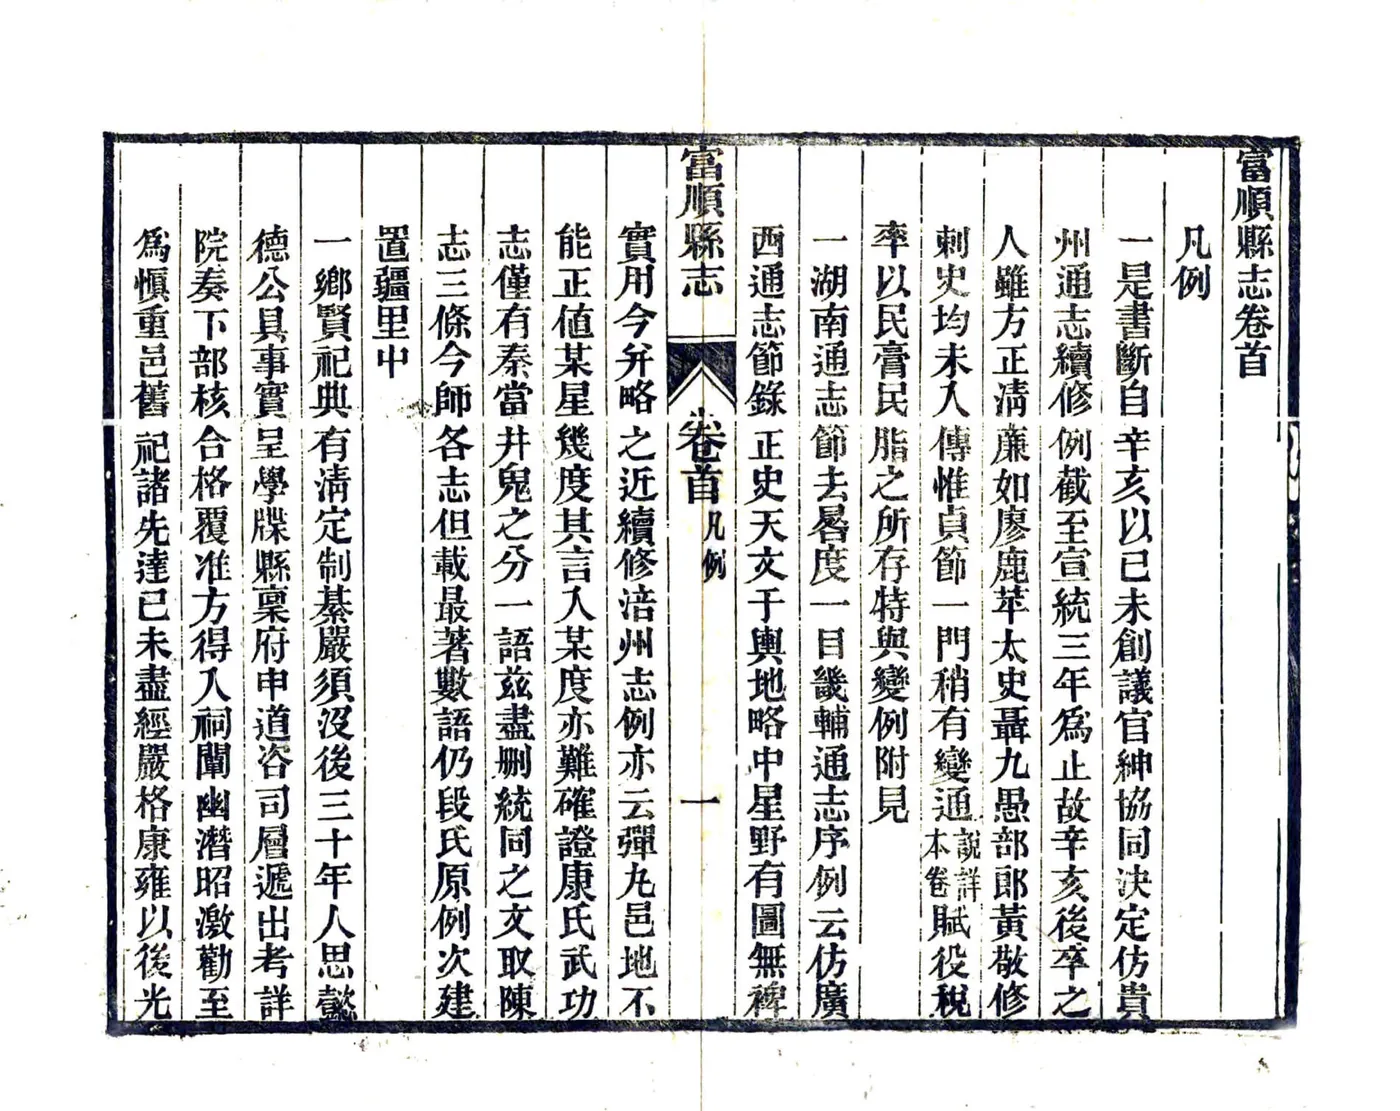 富順縣志卷首
凡例
一是書斷自辛亥以已未創議官紳協同決定仿貴
州通志續修例截至宣統三年爲止故辛亥後卒之
人雖方正清廉如廖鹿苹太史聶九愚部郎黃敬修
刺史均未入傳惟貞節一門稍有變通說詳本卷賦役稅
率以民膏民脂之所存特與變例附見
一湖南通志節去晷度一目畿輔通志序例云仿廣
西通志節錄正史天文于輿地略中星野有圖無裨
富順縣志 卷首 凡例 一
實用今并略之近續修涪州志例亦云彈丸邑地不
能正値某星幾度其言入某度亦難確證康氏武功
志僅有秦當井鬼之分一語玆盡删統同之文取陳
志三條今師各志但載最著數語仍段氏原例次建
置疆里中
一鄉賢祀典有清定制綦嚴須沒後三十年人思懿
德公具事實呈學牒縣稟府申道咨司層遞出考詳
院奏下部核合格覆准方得入祠闡幽潛昭激勸至
爲愼重邑舊祀諸先達已未盡經嚴格康雍以後光